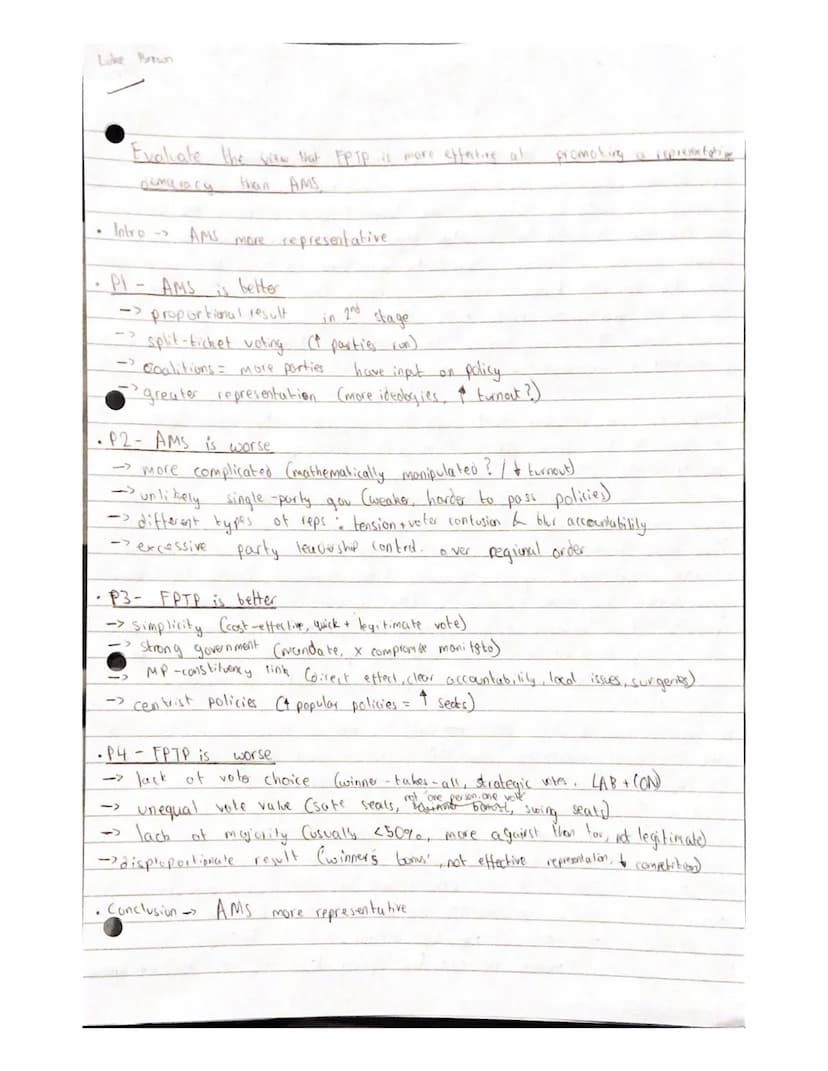 Luke Brown
Evaluate the view that FPTP is more effective at promoting a representative
democracy than AMS.
• Intro -> AMS more representative
• P1 - AMS is better
-> proportional result in 2nd stage
-> split-ticket voting (↑ parties run)
-> coalitions = more parties have input on policy
-> greater representation (more ideologies, ↑ turnout?)
• P2 - AMS is worse
-> more complicated (mathematically manipulated? / ↓ turnout)
-> unlikely single-party gov (weaker, harder to pass policies)
-> different types of reps ∴ tension + voter confusion & blur accountability
-> excessive party leadership control over regional order
• P3 - FPTP is better
-> simplicity (cost-effective, quick + legitimate vote)
-> strong government (mandate, x compromise manifesto)
-> MP-constituency link (direct effect, clear accountability, local issues, surgeries)
-> centrist policies (↑ popular policies = ↑ seats)
• P4 - FPTP is worse
-> lack of vote choice (winner-takes-all, strategic votes. LAB + CON)
-> unequal vote value (safe seats, not 'one person, one vote', swing seats)
-> lack of majority (usually <50%, more against than for, not legitimate)
-> disproportionate result (winner's bonus', not effective representation, ↓ competition)
• Conclusion -> AMS more representative